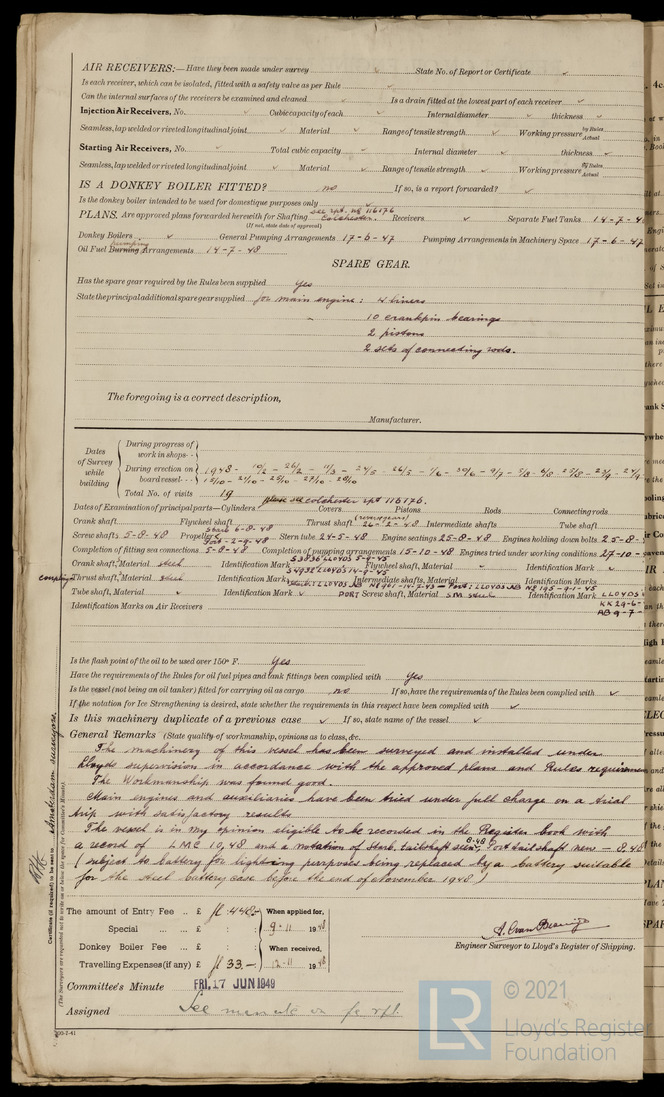 AIR RECEIVERS:— Have they been made under survey ✓ State No. of Report or Certificate ✓
Is each receiver, which can be isolated, fitted with a safety valve as per Rule ✓
Can the internal surfaces of the receivers be examined and cleaned ✓ Is a drain fitted at the lowest part of each receiver ✓
Injection Air Receivers, No. ✓ Cubic capacity of each ✓ Internal diameter ✓ thickness ✓
Seamless, lap welded or riveted longitudinal joint ✓ Material ✓ Range of tensile strength ✓ Working pressure by Rules Actual
Starting Air Receivers, No. ✓ Total cubic capacity ✓ Internal diameter ✓ thickness ✓
Seamless, lap welded or riveted longitudinal joint ✓ Material ✓ Range of tensile strength ✓ Working pressure by Rules Actual
IS A DONKEY BOILER FITTED? no If so, is a report forwarded? ✓
Is the donkey boiler intended to be used for domestique purposes only ✓
see rpt. no 116176
PLANS. Are approved plans forwarded herewith for Shafting Colchester. Receivers ✓ Separate Fuel Tanks 14-7-4
(If not, state date of approval)
Donkey Boilers ✓ General Pumping Arrangements 17-6-47 Pumping Arrangements in Machinery Space 17-6-47
Oil Fuel Burning pumping Arrangements 14-7-48
SPARE GEAR.
Has the spare gear required by the Rules been supplied yes
State the principal additional spare gear supplied for main engine: 4 liners
10 crankpin bearings
2 pistons
2 sets of connecting rods.
The foregoing is a correct description,
Manufacturer.
Dates of Survey while building
During progress of work in shops - -
During erection on board vessel - - - 1948- 10/2 - 26/2 - 11/3 - 24/5 - 26/5 - 1/6 - 30/6 - 9/7 - 5/8 - 6/8 25/8 - 23/9 - 24/9
15/10 - 21/10 - 25/10 - 27/10 - 28/10
Total No. of visits 19 please see Colchester rpt 116176.
Dates of Examination of principal parts—Cylinders Covers Pistons Rods Connecting rods
Crank shaft Flywheel shaft Thrust shaft 26-2-48 Intermediate shafts Tube shaft
Screw shafts 5-8-48 Propellers Starb 6-8-48 Port-2-9-48 Stern tube 24-5-48 Engine seatings 25-8-48 Engines holding down bolts 25-8-
Completion of fitting sea connections 5-8-48 Completion of pumping arrangements 15-10-48 Engines tried under working conditions 27-10-
Crank shaft, Material steel Identification Mark S3836 LLOYDS 5-9-45 Flywheel shaft, Material ✓ Identification Mark ✓
coupling Thrust shaft, Material steel Identification Mark S4932 LLOYDS 14-9-45 Intermediate shafts, Material Identification Marks
Tube shaft, Material ✓ Identification Mark ✓ PORT Screw shaft, Material SM steel Identification Mark LLOYDS
Identification Marks on Air Receivers KK 29-6-
AB 9-7-
Is the flash point of the oil to be used over 150° F. Yes
Have the requirements of the Rules for oil fuel pipes and tank fittings been complied with yes
Is the vessel (not being an oil tanker) fitted for carrying oil as cargo no If so, have the requirements of the Rules been complied with ✓
If the notation for Ice Strengthening is desired, state whether the requirements in this respect have been complied with ✓
Is this machinery duplicate of a previous case ✓ If so, state name of the vessel ✓
General Remarks (State quality of workmanship, opinions as to class, &c.
The machinery of this vessel has been surveyed and installed under
Lloyds supervision in accordance with the approved plans and Rules requiremen
The Workmanship was found good.
Main engines and auxiliaries have been tried under full charge on a trial
trip with satisfactory results
The vessel is in my opinion eligible to be recorded in the Register book with
a record of LMC 10,48 and a notation of Starb. tailshaft new 8-48 Port tailshaft new - 8,48
(subject to battery for lightning perpposes being replaced by a battery suitable
for the steel battery case before the end of November 1948)
The amount of Entry Fee .. £ fl 448:- When applied for,
Special ... ... £ : : 9-11 1948
Donkey Boiler Fee ... £ : : When received,
Travelling Expenses (if any) £ fl 33.- 12-11 1948
Engineer Surveyor to Lloyd's Register of Shipping.
Committee's Minute FRI. 17 JUN 1949
Assigned See minute on fe rpt.
Certificate (if required) to be sent to Amsterdam surveyors.
(The Surveyors are requested not to write on or below the space for Committee's Minute.)
© 2021
LR
Lloyd's Register
Foundation